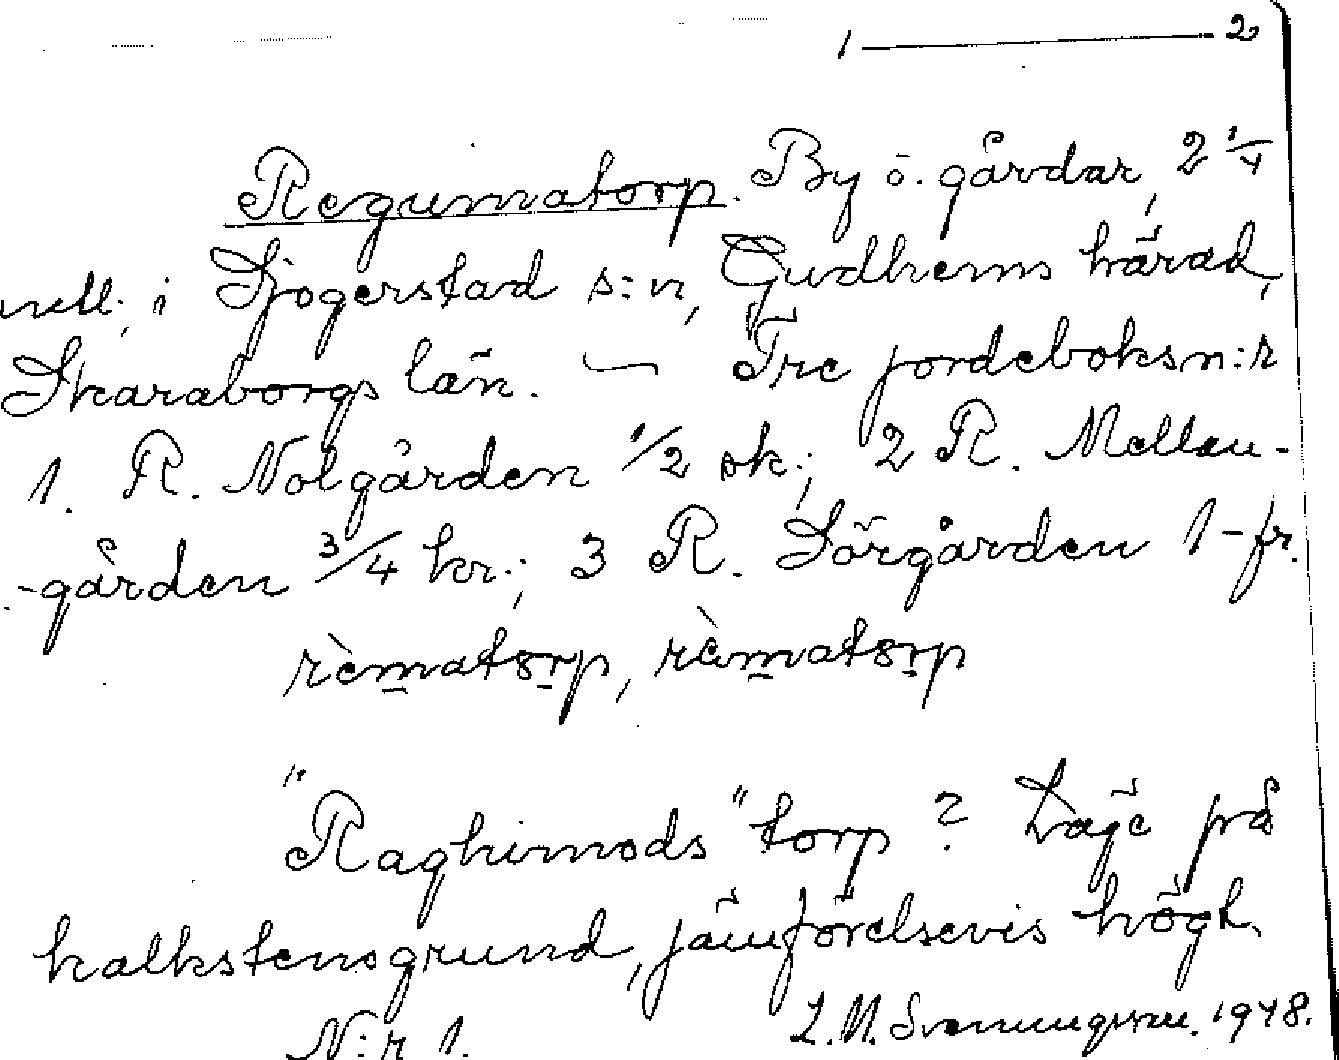 1 ——— 2
Regumatorp. By o. gårdar, 2 1/4
mtl; i Sjogerstad s:n, Gudhems härad,
Skaraborgs län. — Tre jordeboksn:r
1. R. Nolgården 1/2 sk.; 2 R. Mellan-
-gården 3/4 kr.; 3 R. Sörgården 1-fr.
rèmatorp, ràmatorp
"Raghimods" torp? Läge på
kalkstensgrund, jämförelsevis högt.
N:r 1. L.M. Svenungsson. 1948.